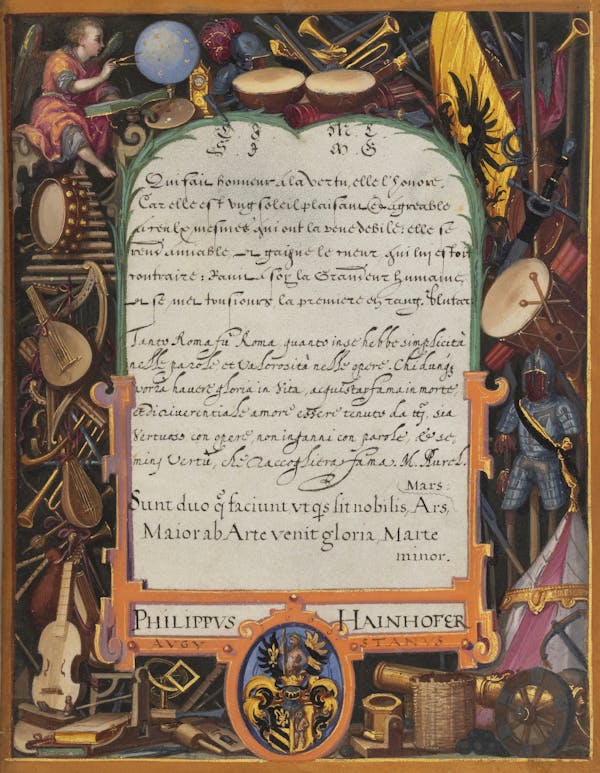 Qui fait honneur a la vertu, elle l'honore.
Car elle est vng soleil plaisant & agreable
a ceulx mesmes qui ont la veue debile: elle se
rend amiable, & gaigne le cueur qui lui estoit
contraire: Ravit a soy la Grandeur humaine,
& se met tousiours la premiere en rang. Plutar.
Tanto Roma fu Roma quanto in se hebbe simplicità
nelle parole et Valorosità nelle opere. Chi dunq3
vorra havere gloria in Vita, acquistar fama in morte,
amore essere tenuto da ttj, sia
Vertuoso con opere, non inganni con parole, & se,
minj Vertù, che raccogliera fama. M. Aurel.
Mars:
Sunt duo q̃ faciunt vt q̃s sit nobilis, Ars,
Maior ab Arte venit gloria, Marte
minor.
PHILIPPVS HAINHOFER
AVGV STANVS